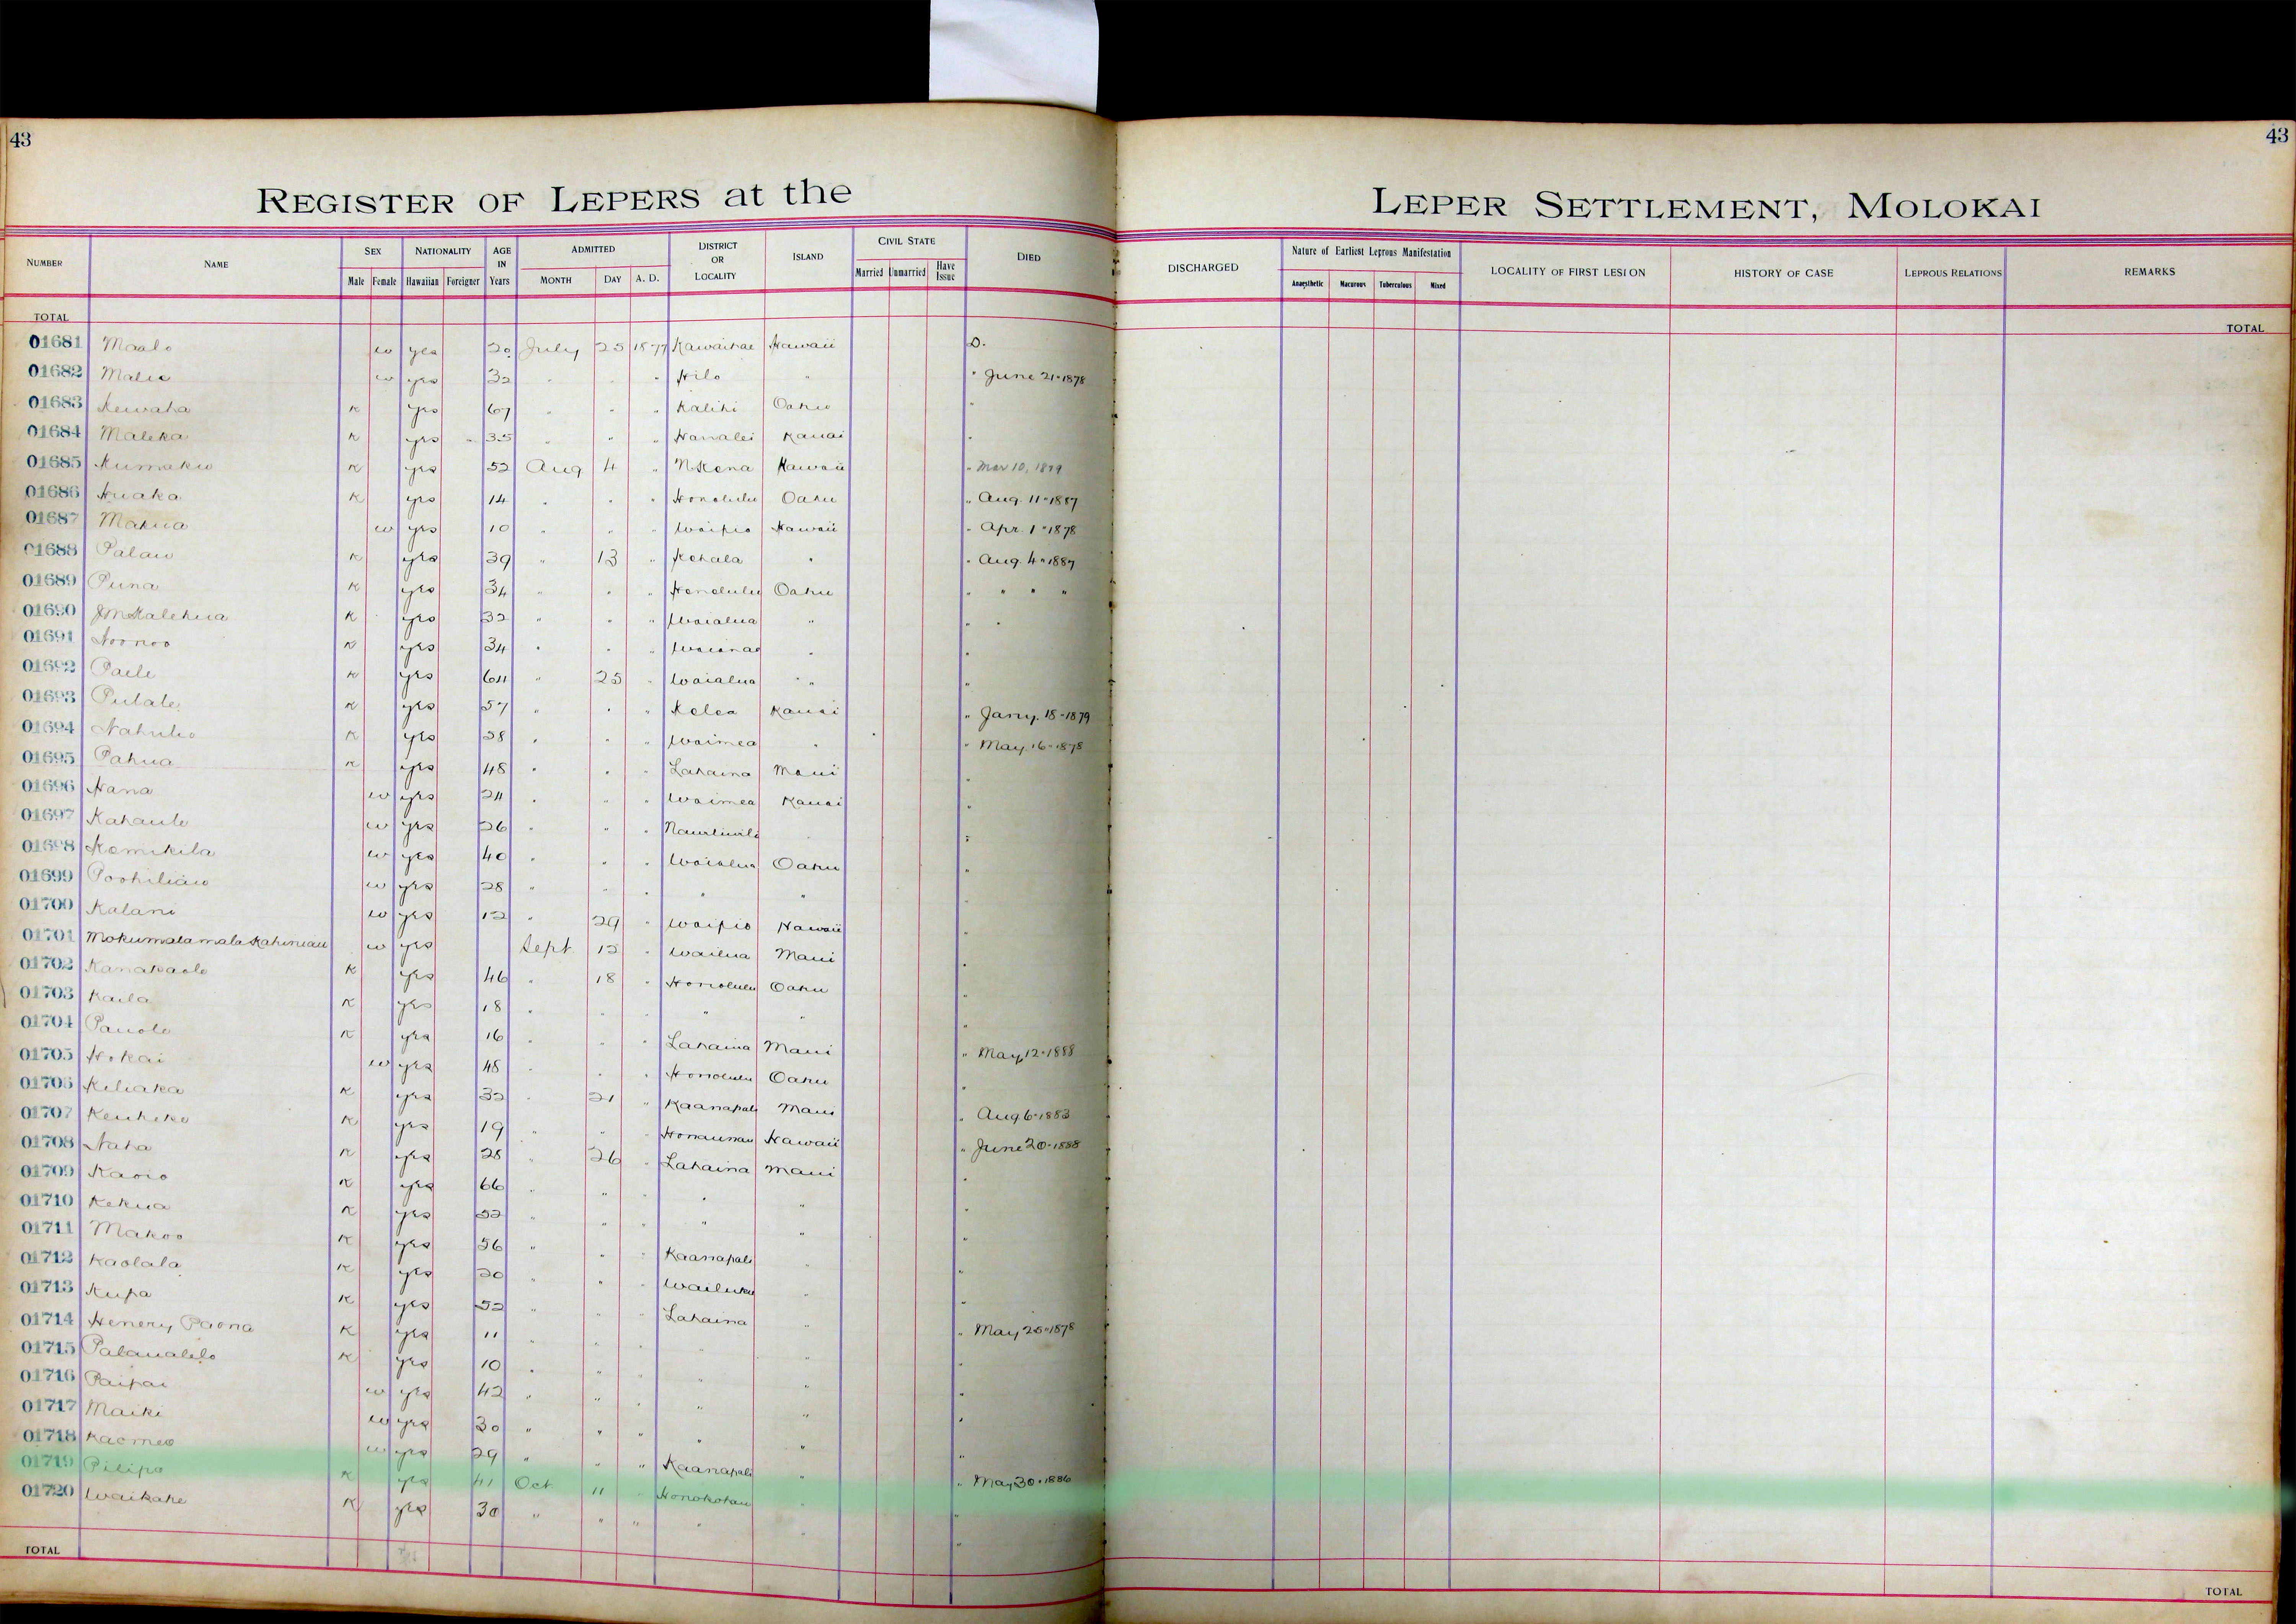 43
43
REGISTER OF LEPERS at the
LEPER SETTLEMENT, MOLOKAI
NUMBER NAME SEX NATIONALITY AGE IN Years ADMITTED DISTRICT OR LOCALITY ISLAND CIVIL STATE DIED
Male Female Hawaiian Foreigner MONTH DAY A. D. Married Unmarried Have Issue
DISCHARGED Nature of Earliest Leprous Manifestation LOCALITY OF FIRST LESION HISTORY OF CASE LEPROUS RELATIONS REMARKS
Anaesthetic Macurous Tuberculous Mixed
TOTAL
TOTAL
01681 Maalo w yes 20 July 25 1877 Kawaihae Hawaii D.
01682 w yes 32 " " " Hilo " " June 21-1878
01683 Kewaha k yes 67 " " " Kalihi Oahu "
01684 Maleka k yes 35 " " " Hanalei Kauai "
01685 Kumaku k yes 52 Aug 4 " N. Kona Hawaii " Mar 10, 1879
01686 Huaka k yes 14 " " " Honolulu Oahu " Aug. 11-1887
01687 Makua w yes 10 " " " Waipio Hawaii " Apr. 1-1878
01688 Palau k yes 39 " 13 " Kohala " " Aug. 4-1887
01689 Puna k yes 34 " " " Honolulu Oahu " " " "
01690 J M Kalehua k yes 32 " " " Waialua " " "
01691 Noonoo k yes 34 " " " Waianae " "
01692 Paele k yes 64 " 25 " Waialua " " "
01693 Pulale k yes 57 " " " Kolea Kauai " Jany. 18-1879
01694 k yes 28 " " " Waimea " " May. 16-1878
01695 Pahua k yes 48 " " " Lahaina Maui "
01696 Hana w yes 24 " " " Waimea Kauai "
01697 Kahaule w yes 26 " " " Nawiliwili "
01698 Kamikila w yes 40 " " " Waialua Oahu "
01699 Poohiliau w yes 28 " " " " "
01700 Kalani w yes 12 " 29 " Waipio Hawaii "
01701 w yes Sept 12 " Wailua Maui "
01702 Kanakaole k yes 46 " 18 " Honolulu Oahu "
01703 Kaila k yes 18 " " " " " "
01704 Pauole k yes 16 " " " Lahaina Maui " May, 12-1888
01705 Hokai w yes 48 " " " Honolulu Oahu "
01706 Keliaka k yes 32 " 21 " Kaanapali Maui " Aug 6-1883
01707 k yes 19 " " " Honaunau Hawaii " June 20-1888
01708 Naha k yes 28 " 26 " Lahaina Maui "
01709 k yes 66 " " " " " "
01710 Kekua k yes 52 " " " " " "
01711 Makoo k yes 56 " " " Kaanapali " "
01712 Kaolala k yes 20 " " " Wailuku " "
01713 Kupa k yes 52 " " " Lahaina " " May 25-1878
01714 Henery Paona k yes 11 " " " " " "
01715 Palaualelo k yes 10 " " " " " "
01716 Paipai w yes 42 " " " " " "
01717 Maiki w yes 30 " " " " " "
01718 Kaomeo w yes 29 " " " Kaanapali " " May 30-1886
01719 Pilipo k yes 41 Oct 11 " Honokohau " "
01720 Waikahe k yes 30 " " " " " "
TOTAL
TOTAL